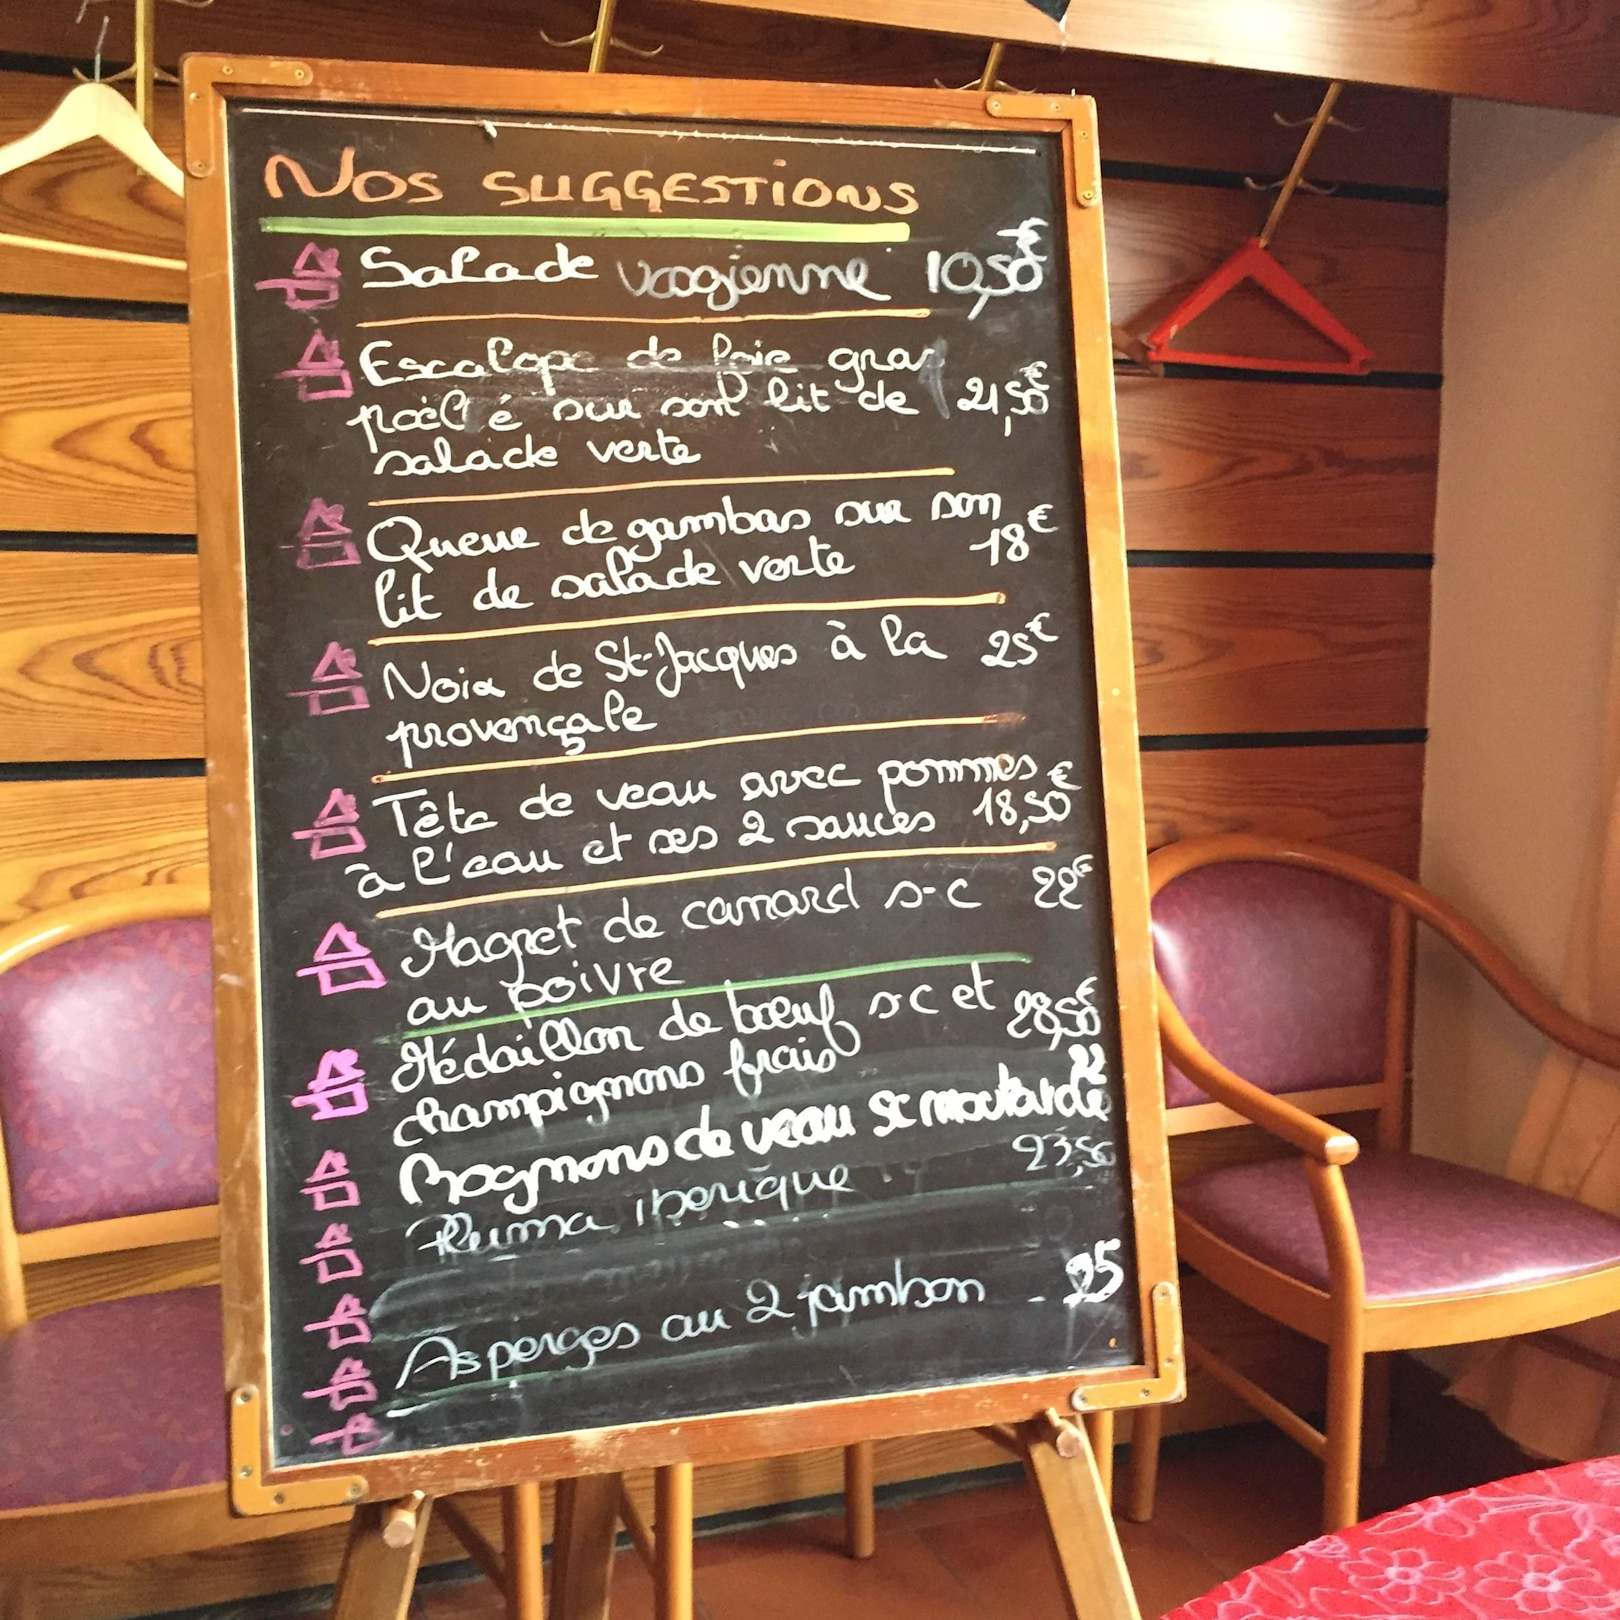 NOS SUGGESTIONS
Salade vosgienne 10,50€
Escalope de foie gras
poêlé sur sont lit de 21,50€
salade verte
Queue de gambas sur son
lit de salade verte 18€
Noix de St-Jacques à la 25€
provençale
Tête de veau avec pommes
à l'eau et ses 2 sauces 18,50€
Magret de canard s-c 22€
au poivre
Médaillon de bœuf s-c et 28,50€
champignons frais
22
Rognons de veau sc moutarde
Pluma iberique 23,50
Asperges au 2 jambon - 25